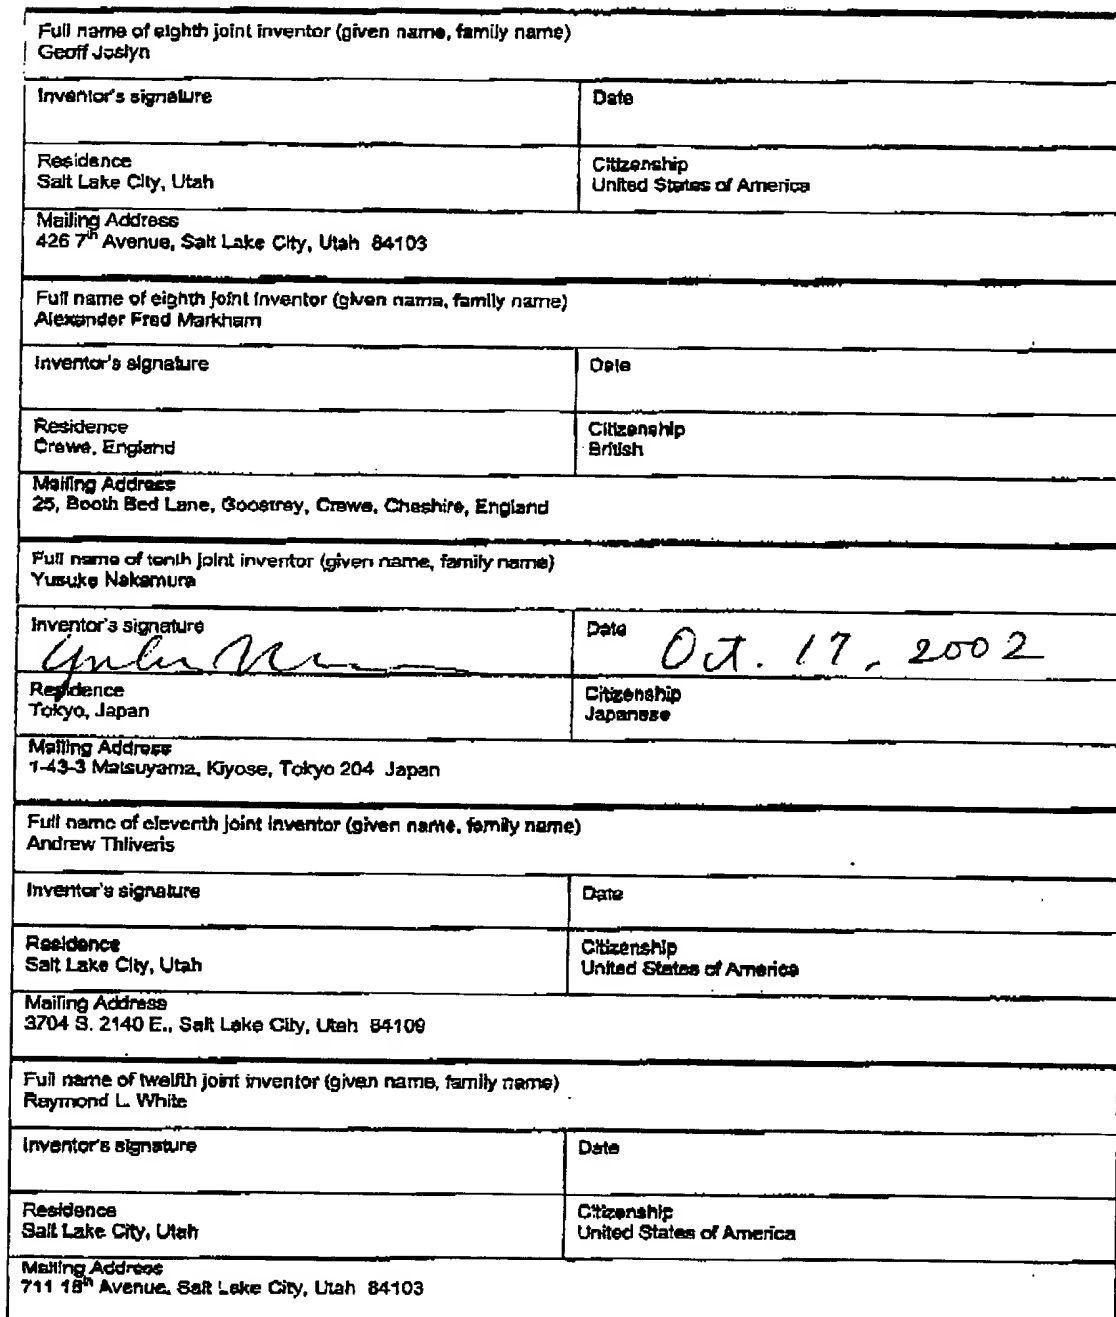 Full name of eighth joint inventor (given name, family name)
Geoff Joslyn
Inventor's signature
Date
Residence
Salt Lake City, Utah
Citizenship
United States of America
Mailing Address
426 7th Avenue, Salt Lake City, Utah 84103
Full name of eighth joint inventor (given name, family name)
Alexander Fred Markham
Inventor's signature
Date
Residence
Crewe, England
Citizenship
British
Mailing Address
25, Booth Bed Lane, Goostrey, Crewe, Cheshire, England
Full name of tenth joint inventor (given name, family name)
Yusuke Nakamura
Inventor's signature
Date Oct. 17, 2002
Residence
Tokyo, Japan
Citizenship
Japanese
Mailing Address
1-43-3 Matsuyama, Kiyose, Tokyo 204 Japan
Full name of eleventh joint inventor (given name, family name)
Andrew Thliveris
Inventor's signature
Date
Residence
Salt Lake City, Utah
Citizenship
United States of America
Mailing Address
3704 S. 2140 E., Salt Lake City, Utah 84109
Full name of twelfth joint inventor (given name, family name)
Raymond L. White
Inventor's signature
Date
Residence
Salt Lake City, Utah
Citizenship
United States of America
Mailing Address
711 18th Avenue, Salt Lake City, Utah 84103